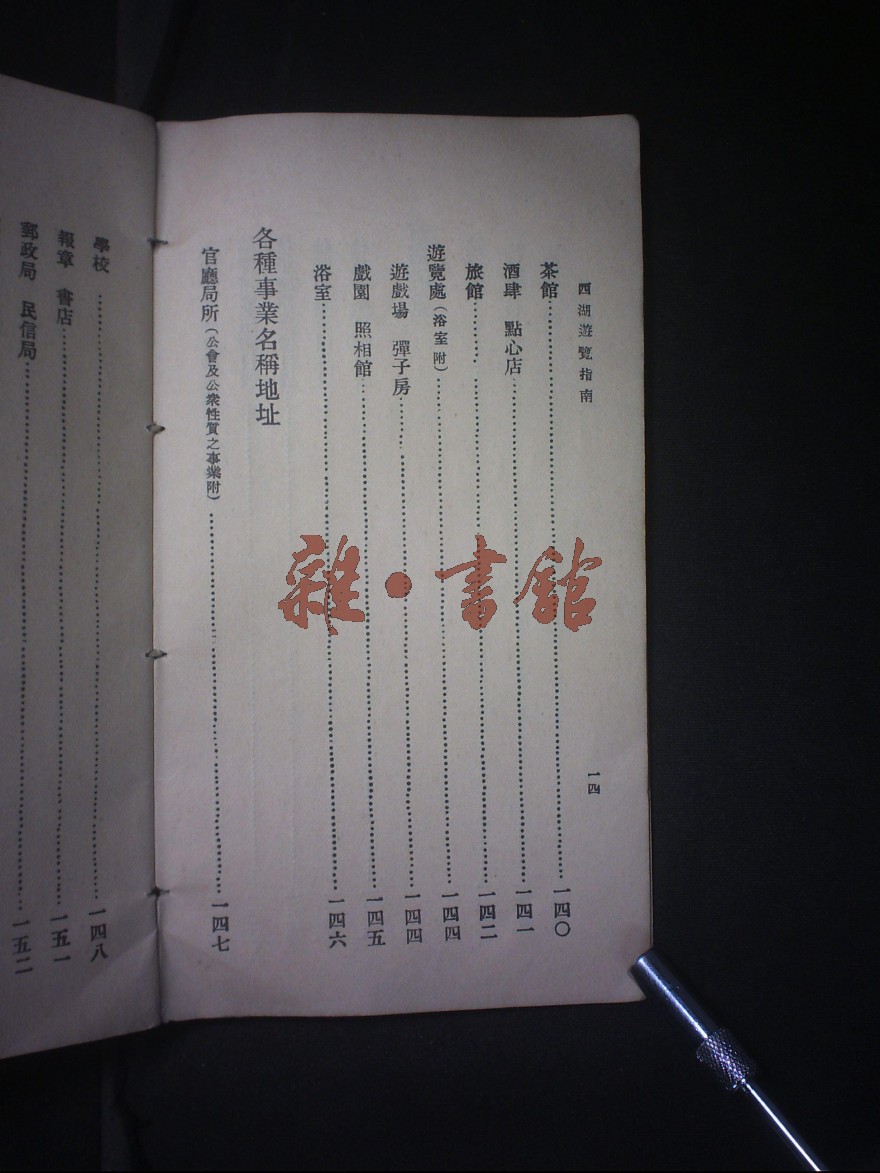 西湖遊覽指南 一四
茶館 一四〇
酒肆 點心店 一四一
旅館 一四二
遊覽處(浴室附) 一四四
遊戲場 彈子房 一四四
戲園 照相館 一四五
浴室 一四六
各種事業名稱地址
官廳局所(公會及公衆性質之事業附) 一四七
學校 一四八
報章 書店 一五一
郵政局 民信局 一五二
雜·書館